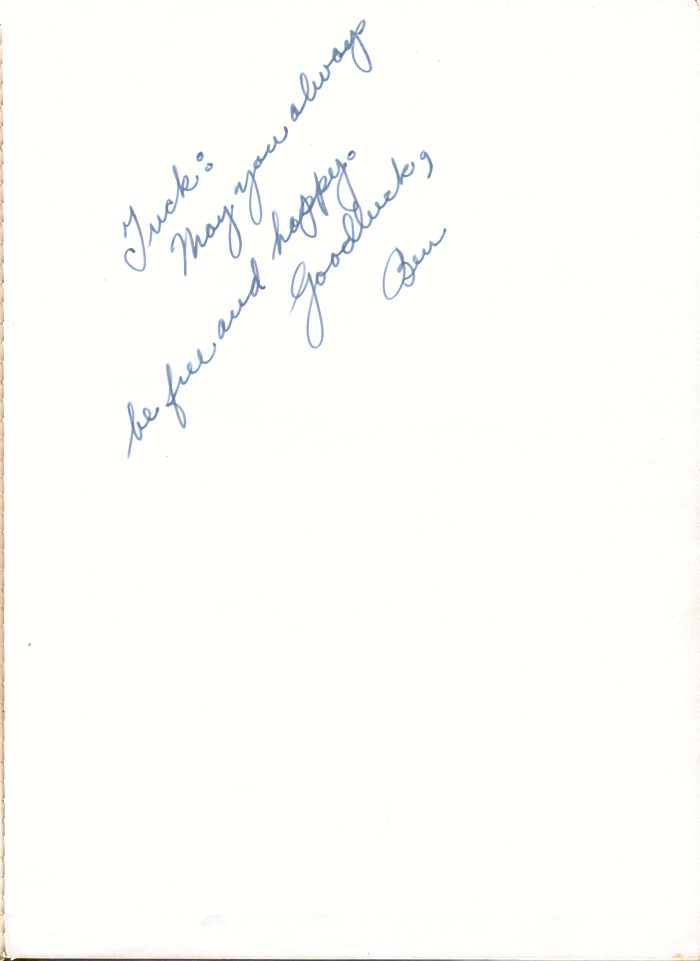 Tuck:
May you always
be free and happy.
Goodluck,
Ben